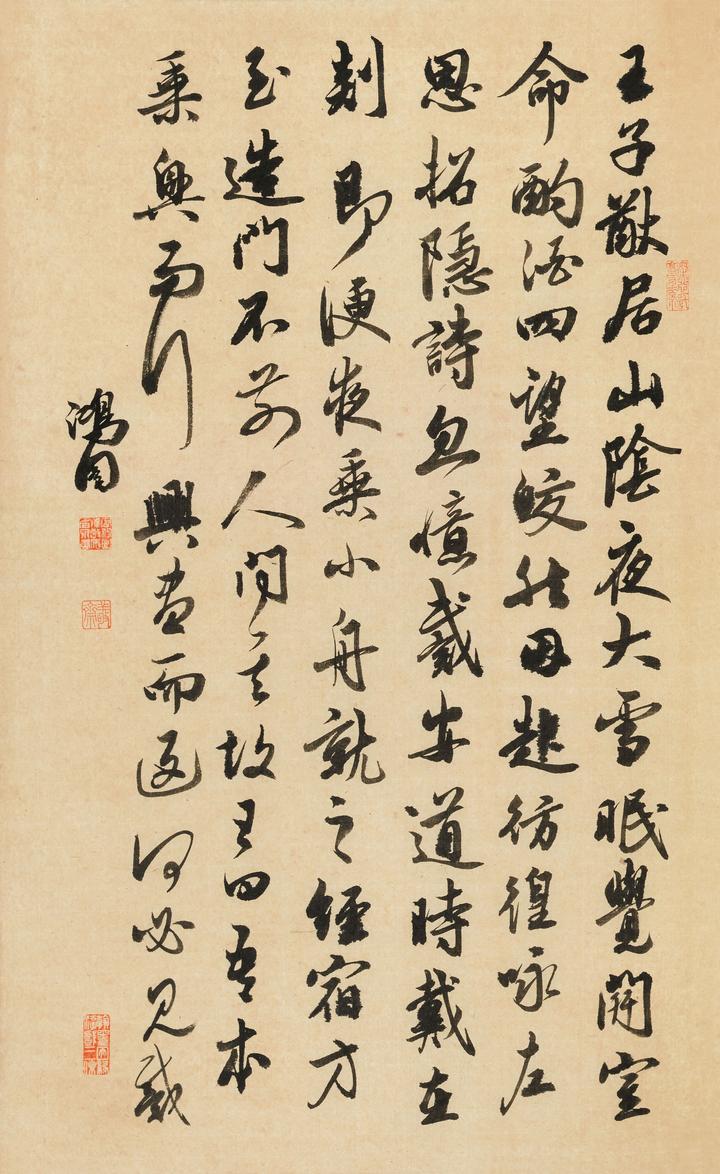 王子猷居山陰夜大雪眠覺開室
命酌酒四望皎然因起彷徨咏左
思招隱詩忽憶戴安道時戴在
剡即便夜乘小舟就之經宿方
至造門不前人問其故王曰吾本
乘興而行興盡而返何必見戴